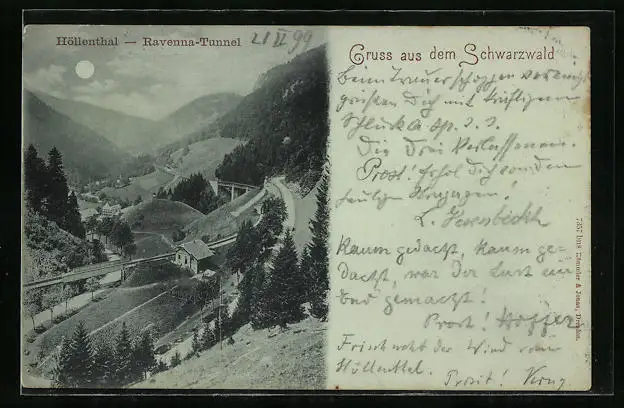 Höllenthal — Ravenna-Tunnel 21 II 99
Gruss aus dem Schwarzwald
beim Trauerschoppen vereinigt
grüßen Dich mit kräftigem
Schluck
Die Drei Verlassenen.
Prost! Erhol Dich von den
Kaum gedacht, kaum ge-
dacht, war der Lust ein
End gemacht!
Prost!
Frisch weht der Wind vom
Höllenthal.
Prosit!
7357 1898 Römmler & Jonas, Dresden.